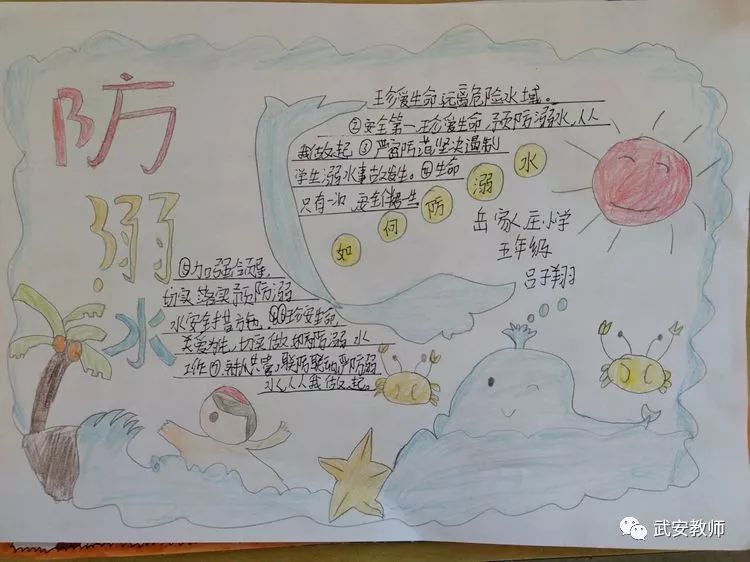 防溺水
珍爱生命 远离危险水域。
②安全第一 珍爱生命 预防溺水,人人
我做起 ③严密防范坚决遏制
学生溺水事故发生。④生命
只有一次 安全伴一生
如何防溺水
岳家庄小学
五年级
吕子翔
⑤加强领导,
切实落实预防溺
水安全措施 ⑥珍爱生命
关爱生,切实做好防溺水
工作⑦ 联防联动严防溺
水人人我做起。
武安教师